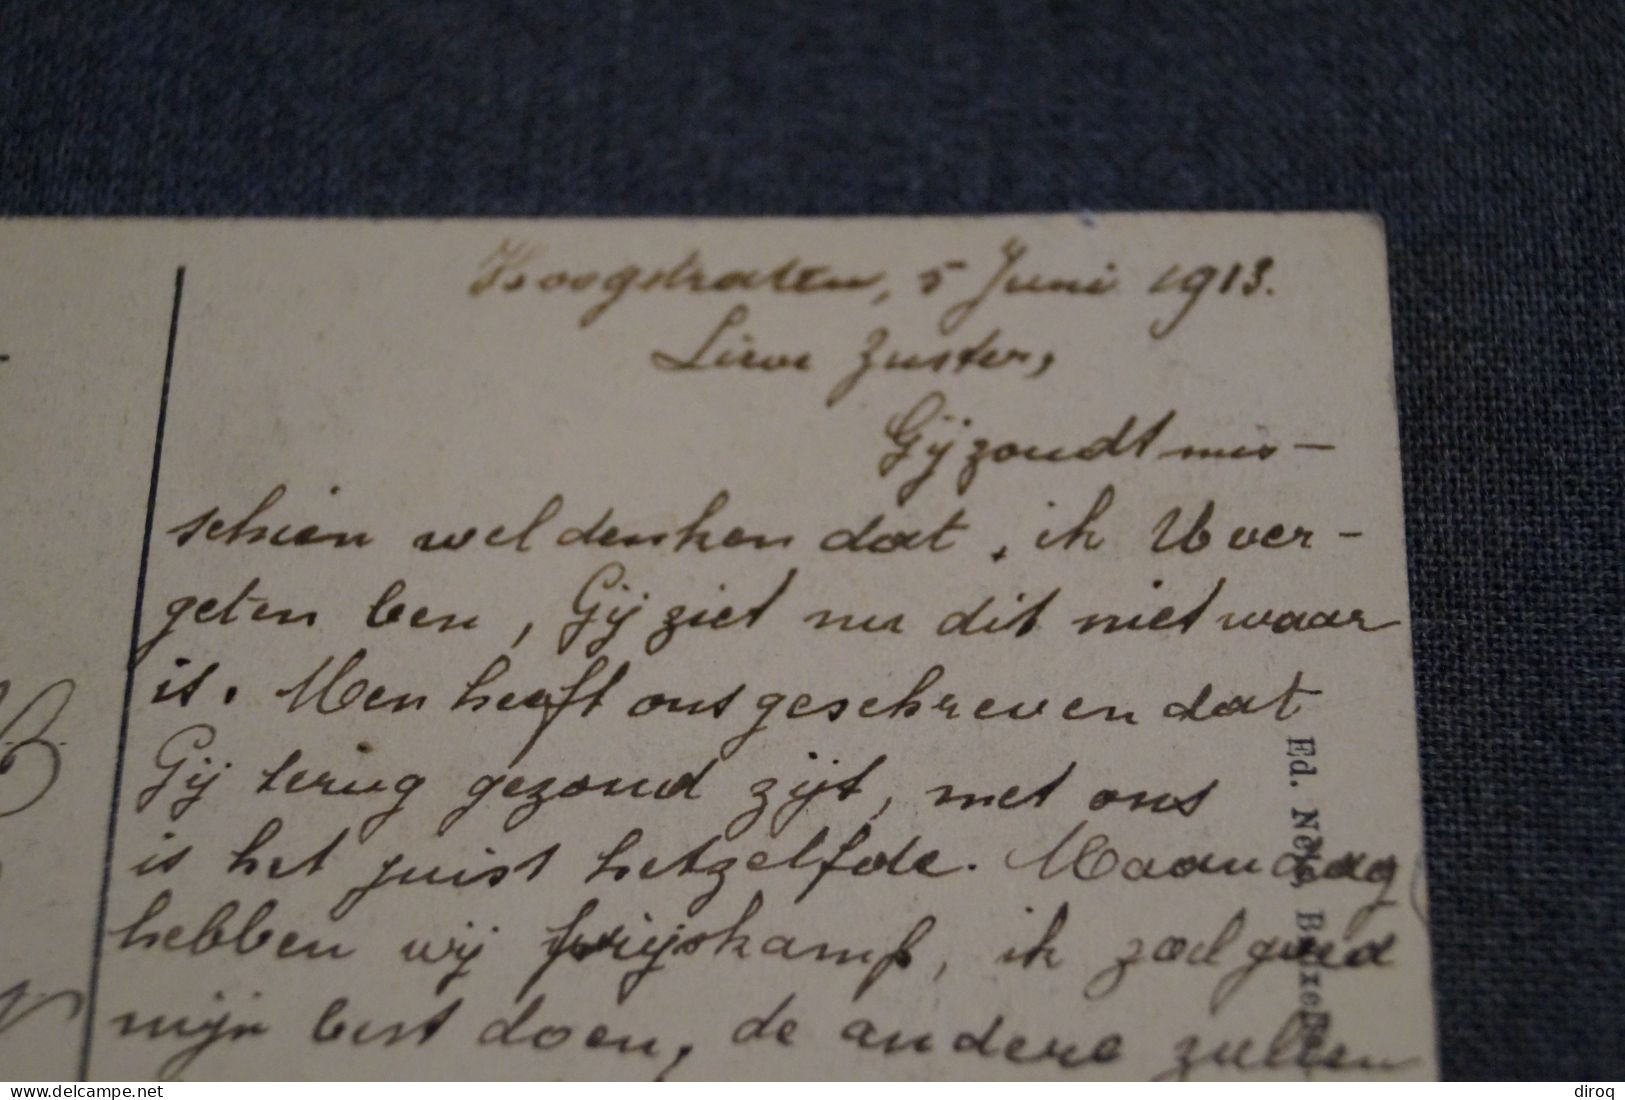 Hoogstraten, 5 Juni 1913.
Lieve Zuster,
Gij zoudt mis-
schien wel denken dat ik U ver-
geten ben, Gij ziet nu dit niet waar
is. Men heeft ons geschreven dat
Gij terug gezond zijt, met ons
is het juist hetzelfde. Maandag
hebben wij prijskamp, ik zal goed
mijn best doen, de andere zullen
Ed. Nels, Bruxelles
diroq
delcampe.net